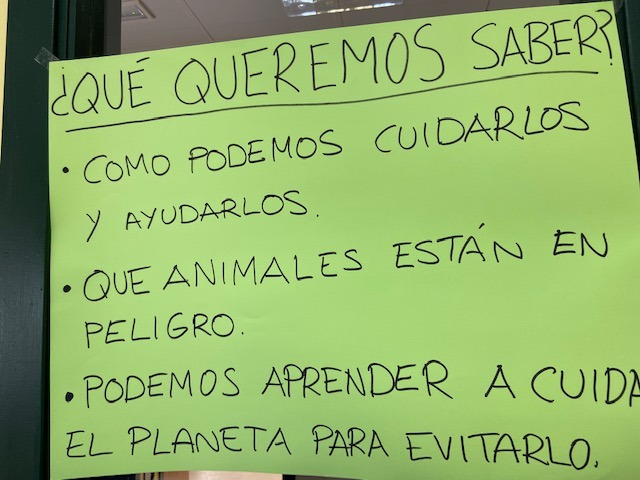 ¿QUÉ QUEREMOS SABER?
• COMO PODEMOS CUIDARLOS
Y AYUDARLOS.
• QUE ANIMALES ESTÁN EN
PELIGRO.
• PODEMOS APRENDER A CUIDA
EL PLANETA PARA EVITARLO.